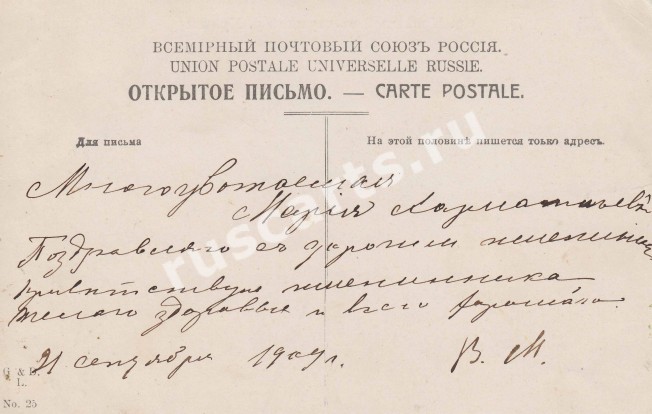 ВСЕМІРНЫЙ ПОЧТОВЫЙ СОЮЗЪ РОССІЯ.
UNION POSTALE UNIVERSELLE RUSSIE.
ОТКРЫТОЕ ПИСЬМО. — CARTE POSTALE.
Для письма
На этой половинѣ пишется тоько адресъ.
Многоуважаемая
Мария
Поздравляю съ дорогим
привѣтствую имениника
желаю здоровья и всего хорошаго.
21 сентября 1909 г. В. М.
G & B.
L.
No. 25
ruscarts.ru